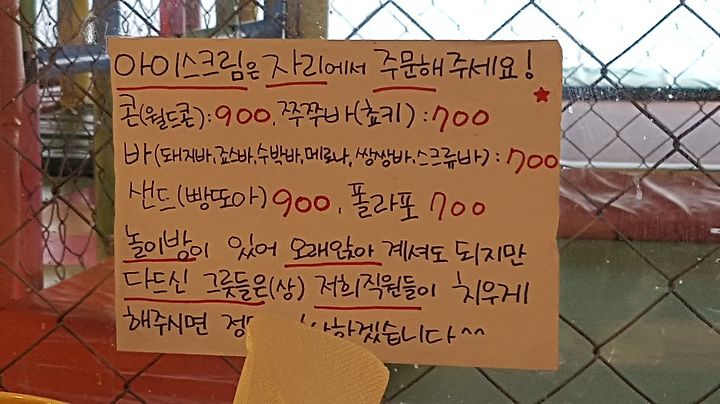 아이스크림은 자리에서 주문해주세요!
콘(월드콘):900, 쭈쭈바(쵸키):700
바(돼지바,죠스바,수박바,메로나,쌍쌍바,스크류바):700
샌드(빵또아)900, 폴라포 700
놀이방이 있어 오래앉아 계셔도 되지만
다드신 그릇들은(상) 저희직원들이 치우게
해주시면 하겠습니다^^